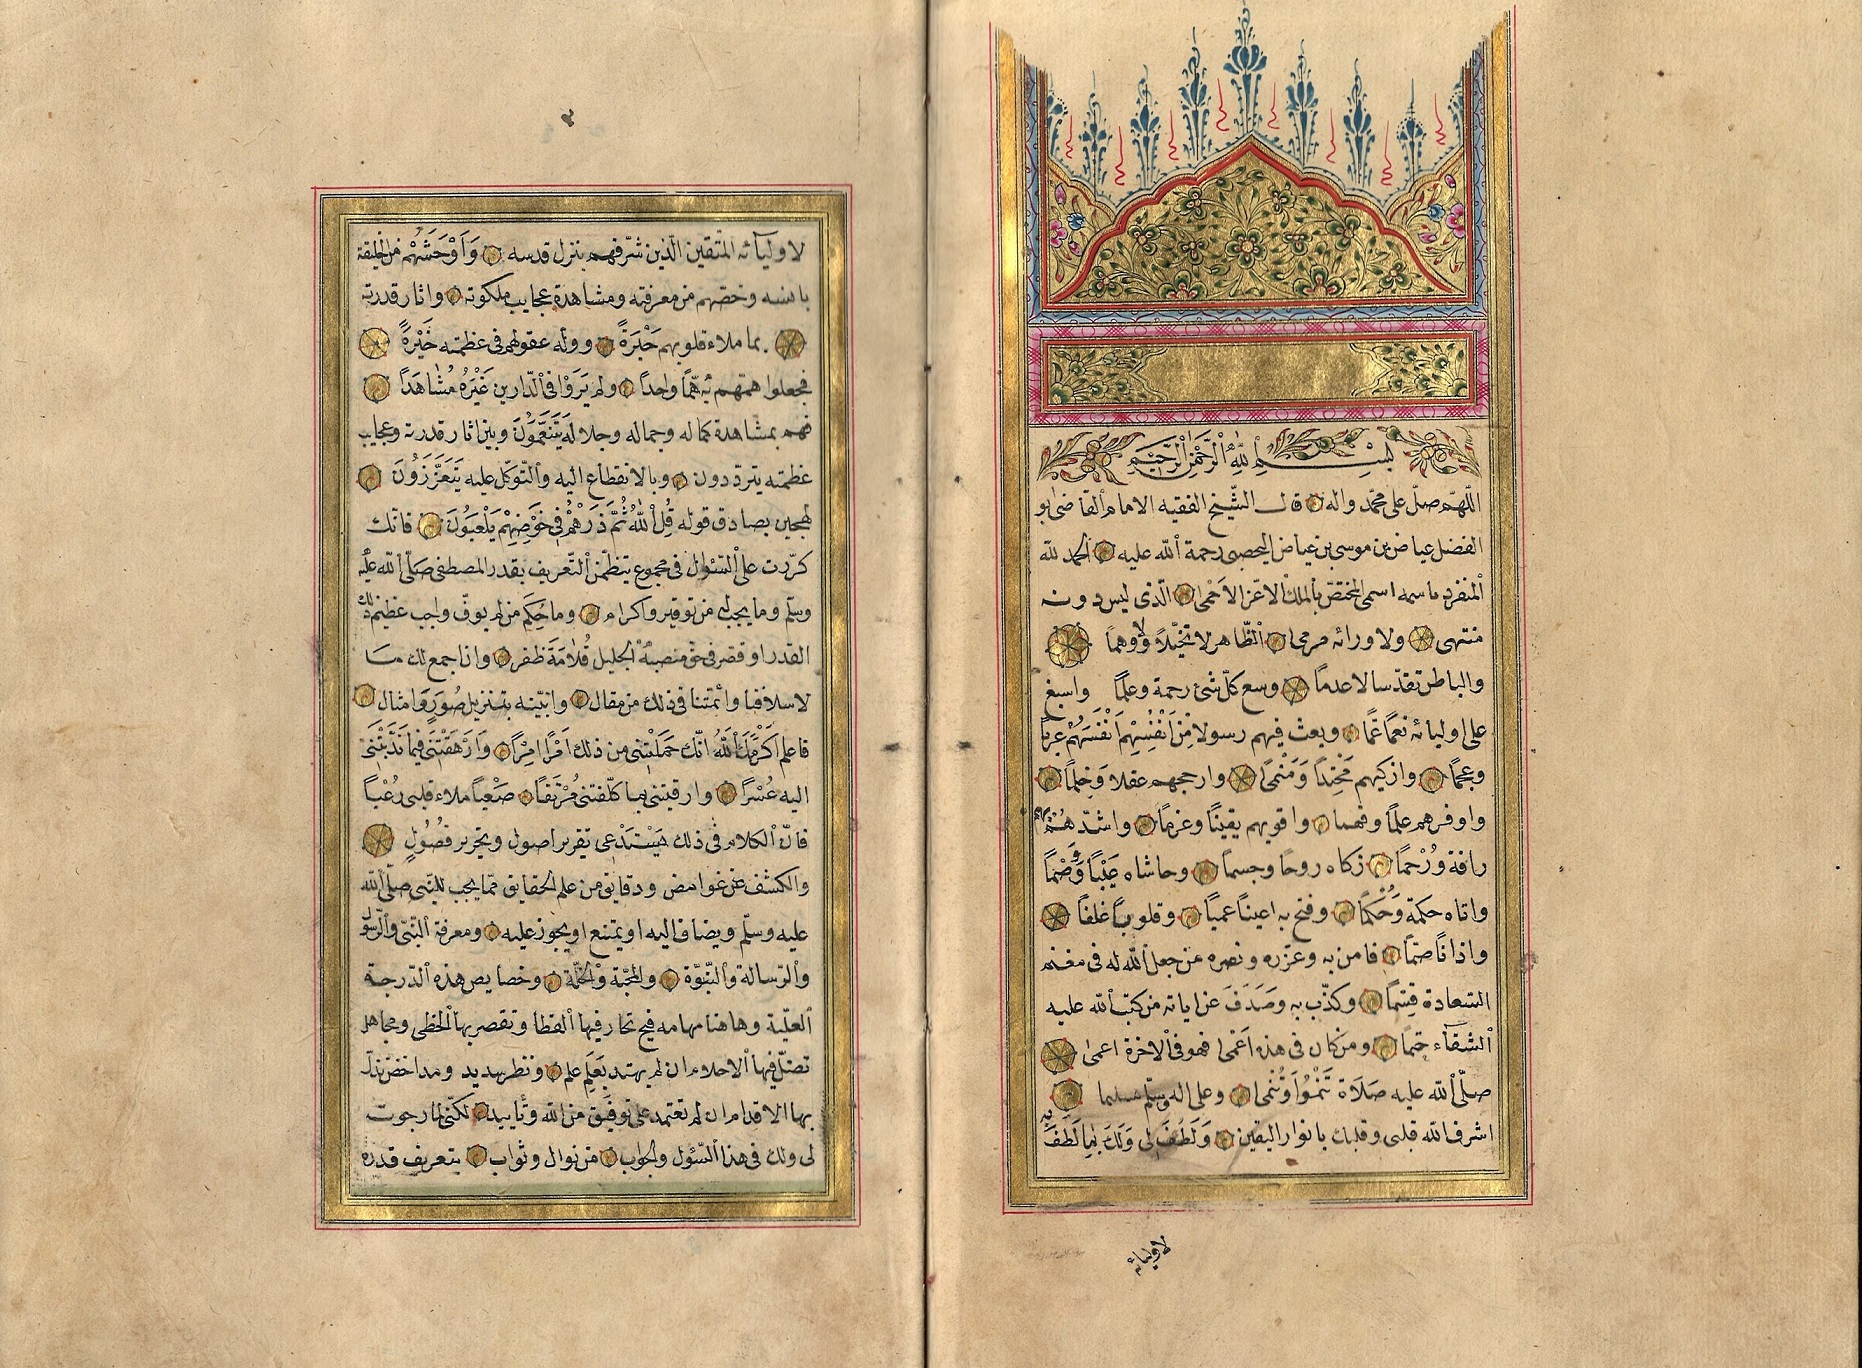 بسم الله الرحمن الرحيم
اللّهم صلّ على محمّد واله قال الشّيخ الفقيه الامام القاضى ابو
الفضل عياض بن موسى بن عياض اليحصبى رحمة الله عليه الحمد لله
المنفرد باسمه اسمى المختصّ بالملك الاعزّ الاحمى الّذى ليس دونه
منتهى ولا ورائه مرمى الظّاهر لا تخيّلاً ولا وهماً
والباطن تقدّسا لا عدماً وسع كلّ شئ رحمة وعلماً واسبغ
على اوليائه نعماً عمّاً وبعث فيهم رسولا من انفسهم انفسهم عرباً
وعجماً وازكيهم محتداً ومنمىً وارجحهم عقلا وحلماً
واوفرهم علماً وفهما واقويهم يقيناً وعزماً واشدّهم بهم
رافة ورُحماً زكاه روحاً وجسماً وحاشاه عيباً ووصماً
واتاه حكمة وحُكماً وفتح به اعيناً عمياً وقلوباً غلفاً
واذاناً صمّاً فامن به وعزره ونصره من جعل الله له فى مغنم
السّعادة قسماً وكذّب به وصدف عن اياته من كتب الله عليه
الشّقآء حتماً ومن كان فى هذه اعمى فهو فى الاخرة اعمى
صلّى الله عليه صلاة تنموا وتُنمى وعلى اله وسلّم تسليما
اشرف الله قلبى وقلبك بانوار اليقين ولطف لى ولك بما لطف به
لاوليائه
لاوليآئه المتّقين الّذين شرّفهم بنزل قدسه واوحشهم من الخليقة
بانسه وخصّهم من معرفته ومشاهدة عجايب ملكوته واثار قدرته
بما ملاء قلوبهم حَبْرَةً وولّه عقولهم فى عظمته حَيْرَةً
فجعلوا همّهم به همّاً واحداً ولم يروا فى الدّارين غيره مُشاهَداً
فهم بمشاهدة كماله وجماله وجلاله يتنعّمون وبين اثار قدرته وعجايب
عظمته يتردّدون وبالانقطاع اليه والتّوكّل عليه يتعزّزون
لهجين بصادق قوله قل الله ثمّ ذرهم فى خوضهم يلعبون فانّك
كرّرت علىّ السّئوال فى مجموع يتظمّن التّعريف بقدر المصطفى صلّى الله عليه
وسلّم وما يجب له من توقير واكرام وما حكم من لم يوفّ واجب عظيم ذلك
القدر او قصّر فى حق منصبه الجليل قلامة ظفر وان اجمع لك ما
لاسلافنا وائمّتنا فى ذلك من مقال وابيّنه بتنزيل صور وامثال
فاعلم اكرمك الله انّك حمّلتنى من ذلك امراً امراً وارهقتنى فيما ندبتنى
اليه عُسْراً وارقيتنى بما كلّفتنى مرتقاً صعباً ملاء قلبى رعباً
فانّ الكلام فى ذلك يستدعى تقرير اصول وتحرير فصول
والكشف عن غوامض ودقايق من علم الحقايق ممّا يجب للنّبى صلّى الله
عليه وسلّم ويضاف اليه او يمتنع او يجوز عليه ومعرفة النّبىّ والرّسول
والرّسالة والنّبوّة والمحبّة والخلّة وخصايص هذه الدّرجة
العليّة وهاهنا مهامه فيح تحار فيها القطا وتقصر بها الخطى ومجاهل
تضلّ فيها الاحلام ان لم يهتد بعلم علم ونظر سديد ومداحض تزلّ
بها الاقدام ان لم تعتمد على توفيق من الله وتأييد لكنّى لما رجوت
لى ولك فى هذا السّئول والجواب من نوال وثواب بتعريف قدره